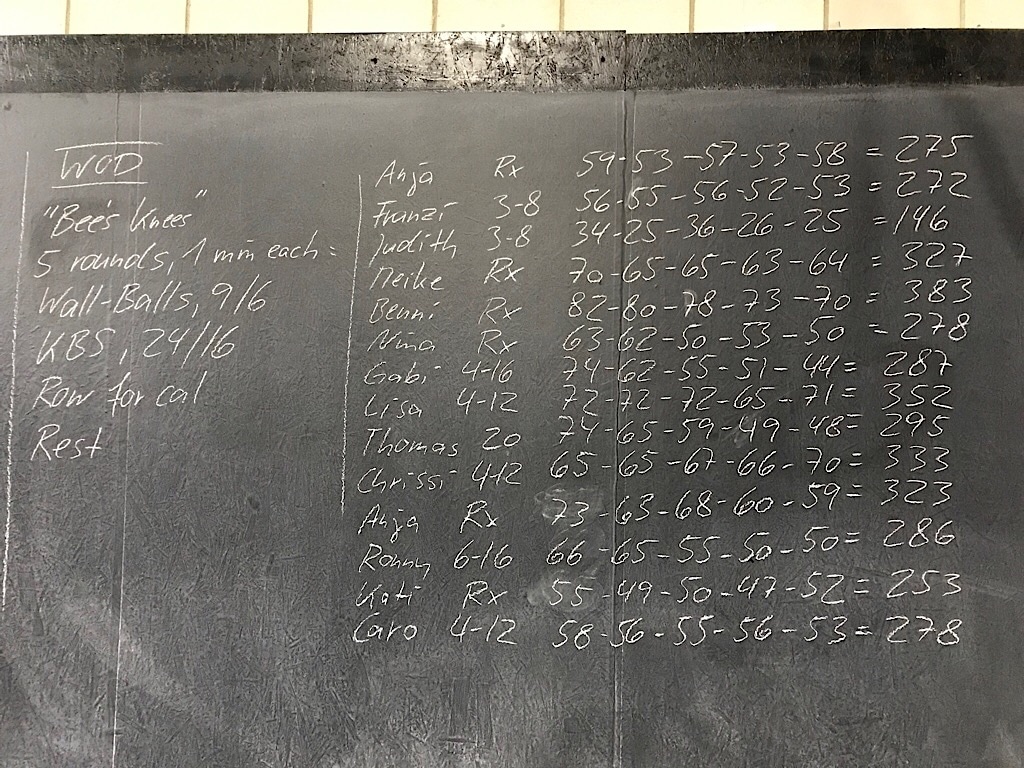 WOD
"Bee's Knees"
5 rounds, 1 min each:
Wall-Balls, 9/6
KBS, 24/16
Row for cal
Rest
Anja Rx 59-53-57-53-58 = 275
Franzi 3-8 56-55-56-52-53 = 272
Judith 3-8 34-25-36-26-25 = 146
Meike Rx 70-65-65-63-64 = 327
Benni Rx 82-80-78-73-70 = 383
Nina Rx 63-62-50-53-50 = 278
Gabi 4-16 74-62-55-51-44 = 287
Lisa 4-12 72-72-72-65-71 = 352
Thomas 20 74-65-59-49-48 = 295
Chrissi 4-12 65-65-67-66-70 = 333
Anja Rx 73-63-68-60-59 = 323
Ronny 6-16 66-65-55-50-50 = 286
Kati Rx 55-49-50-47-52 = 253
Caro 4-12 58-56-55-56-53 = 278